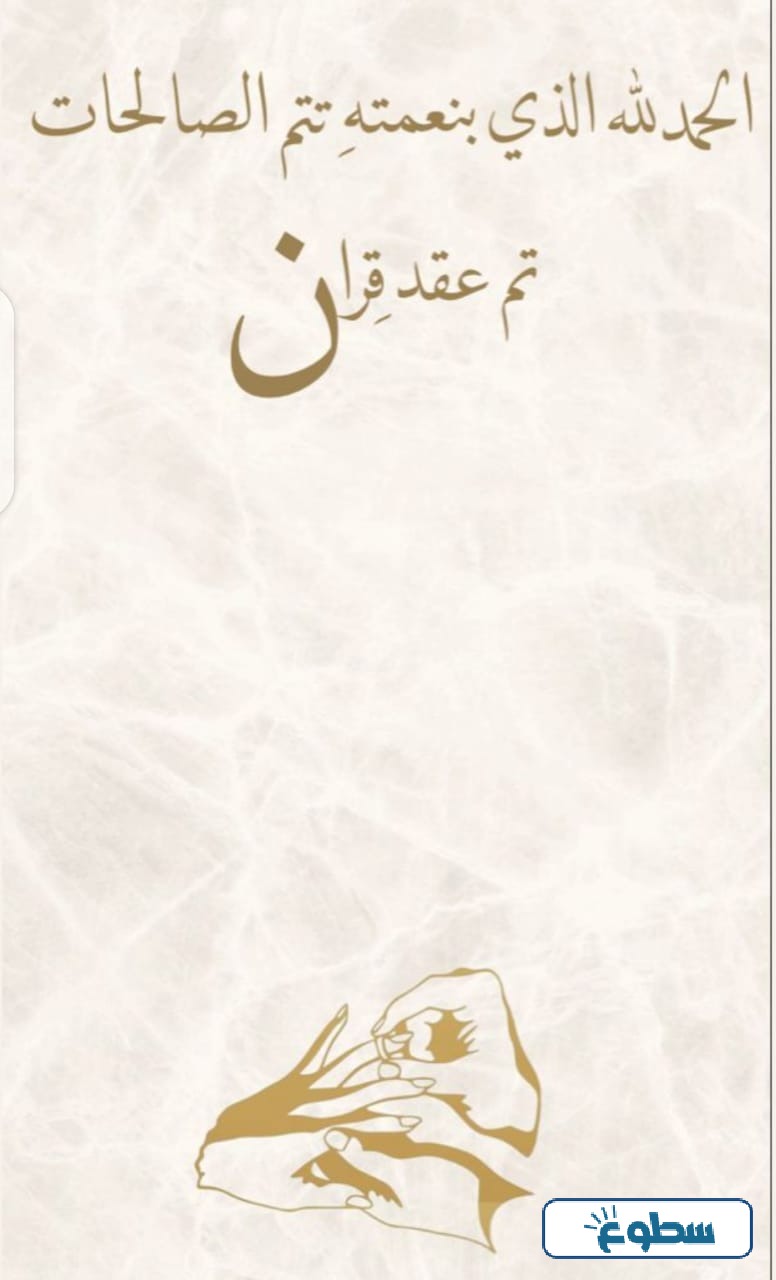 الحمدلله الذي بنعمتهِ تتم الصالحات
تم عقد قِران
سطوع